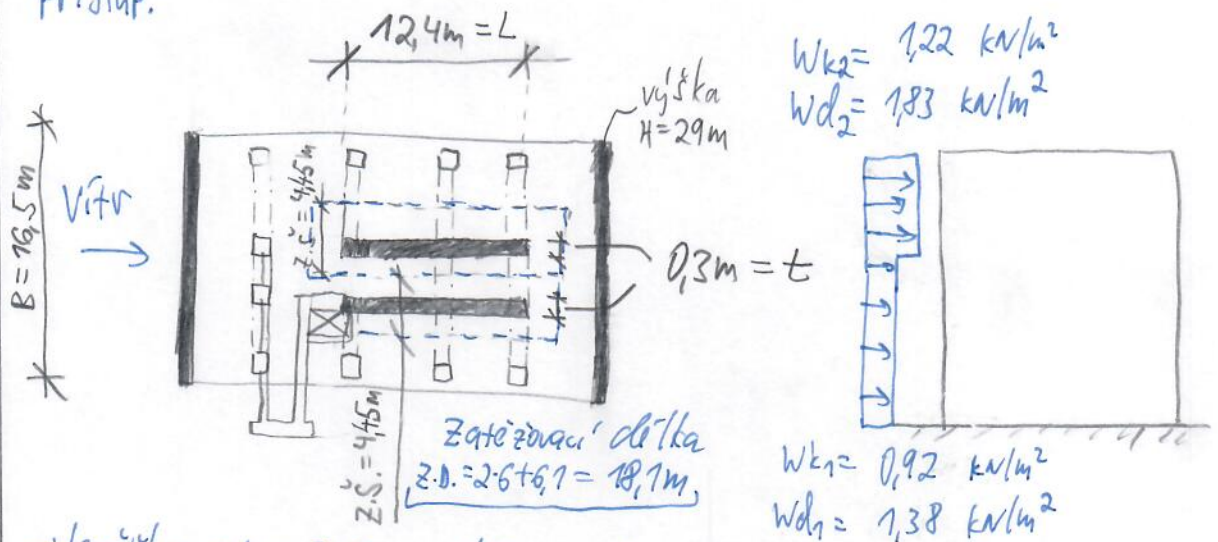 12,4m = L
Wk2 = 1,22 kN/m²
Wd2 = 1,83 kN/m²
výška
H=29m
B = 16,5 m
Vítr
Z.Š. = 4,45m
0,3m = t
Z.Š. = 4,45m
Zatěžovací délka
Z.D. = 2·6+6,1 = 18,1m
Wk1 = 0,92 kN/m²
Wd1 = 1,38 kN/m²